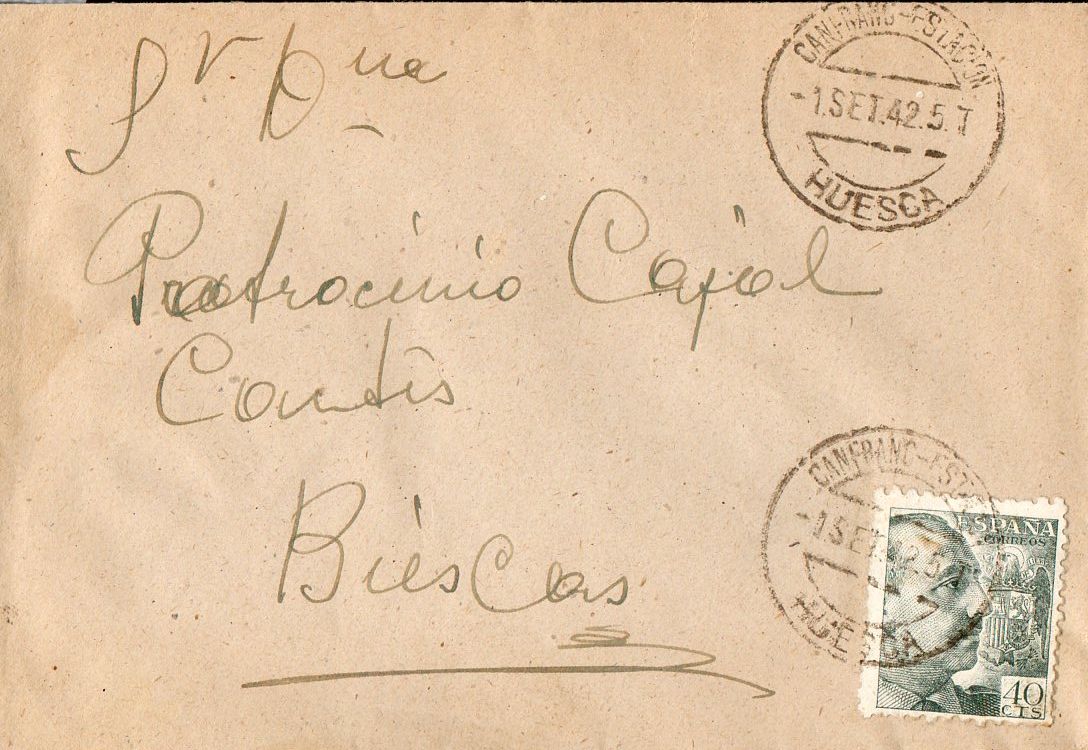 Sr Dña
Patrocinio Cajal
Contis
Biescas
CANFRANC-ESTACION
-1.SET.42.5.T
HUESCA
CANFRANC-EST
-1SET.42.5.T
HUESCA
ESPAÑA
CORREOS
40
CTS